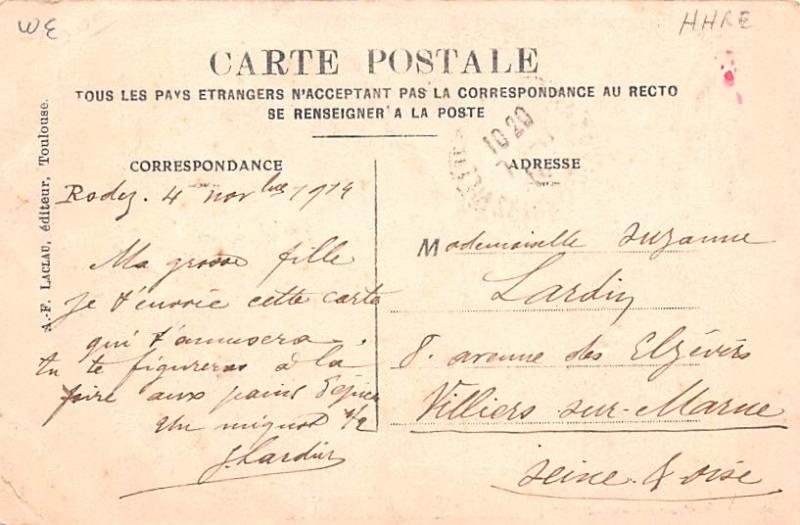 WE
HHRE
CARTE POSTALE
TOUS LES PAYS ETRANGERS N'ACCEPTANT PAS LA CORRESPONDANCE AU RECTO
SE RENSEIGNER A LA POSTE
A.-F. LACLAU, éditeur, Toulouse.
CORRESPONDANCE
Rodez. 4 novbre 1914
Ma grosse fille
je t'envoie cette carte
qui t'amusera.
tu te figureras à la
foire aux pains d'épices
Un mignot
J. Lardin
10 20
ADRESSE
Mademoiselle Suzanne
Lardin
8. avenue des Elzévirs
Villiers-sur-Marne
Seine & Oise